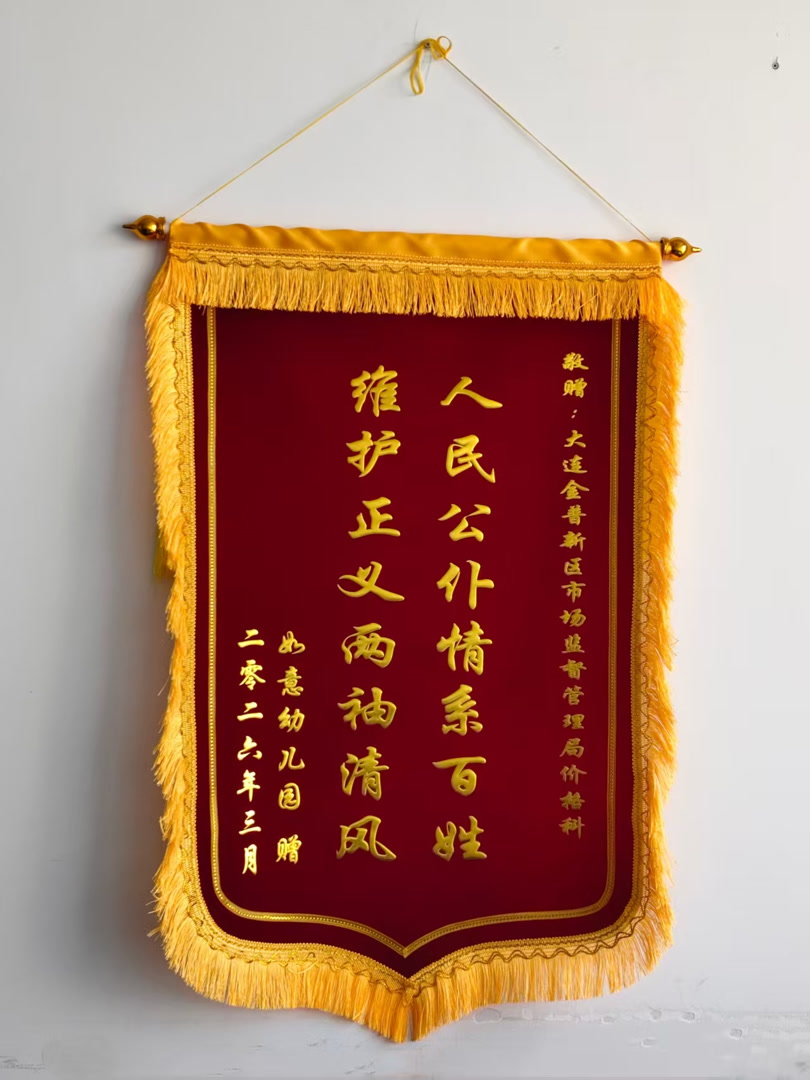 敬赠：大连金普新区市场监督管理局价格科
人民公仆情系百姓
维护正义两袖清风
如意幼儿园 赠
二零二六年三月